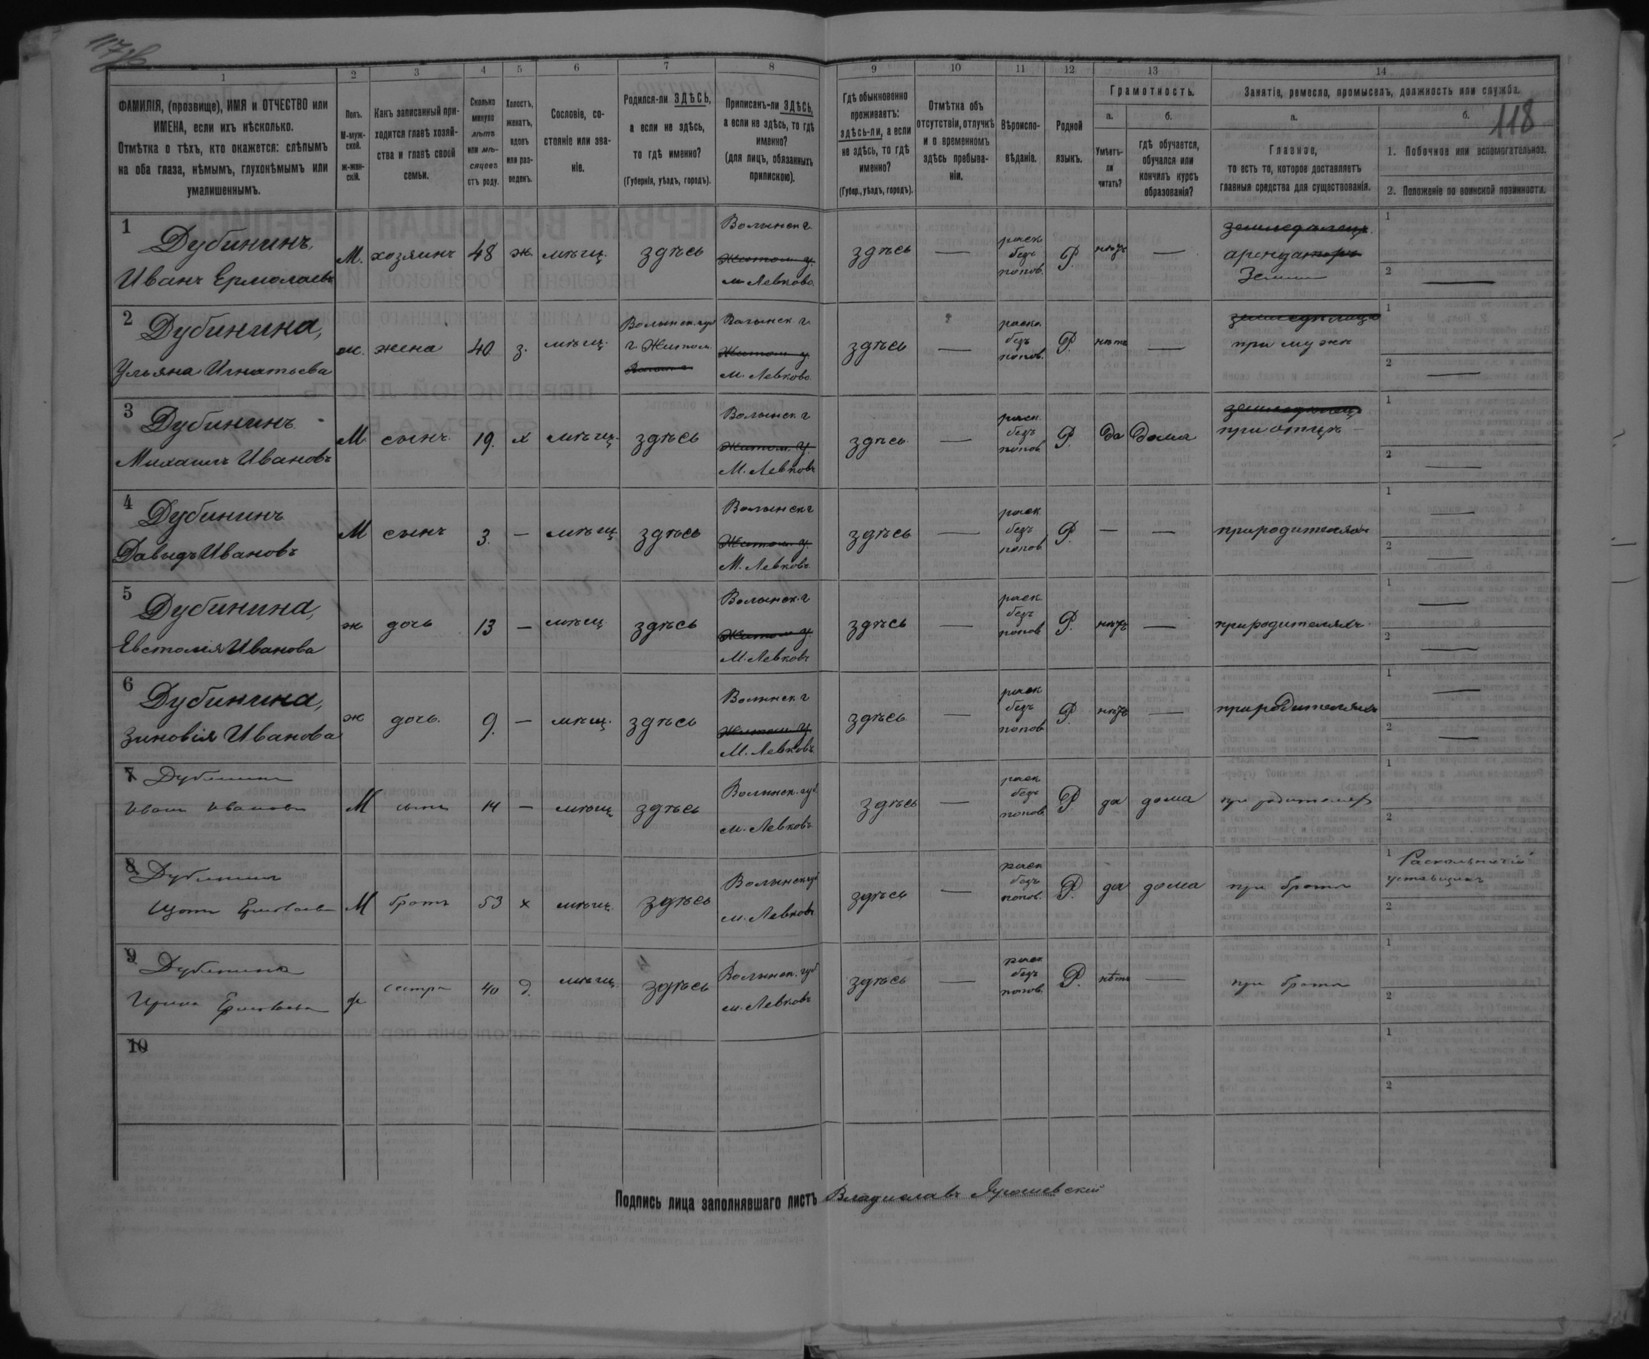 118
1 2 3 4 5 6 7 8 9 10 11 12 13 14
ФАМИЛІЯ, (прозвище), ИМЯ и ОТЧЕСТВО или
ИМЕНА, если ихъ нѣсколько.
Отмѣтка о тѣхъ, кто окажется: слѣпымъ
на оба глаза, нѣмымъ, глухонѣмымъ или
умалишеннымъ.
Полъ.
М-муж-
ской.
ж-жен-
скій.
Какъ записанный при-
ходится главѣ хозяй-
ства и главѣ своей
семьи.
Сколько
минуло
лѣтъ
или мѣ-
сяцевъ
отъ роду.
Холостъ,
женатъ,
вдовъ
или раз-
веденъ.
Сословіе, со-
стояніе или зва-
ніе.
Родился-ли ЗДѢСЬ,
а если не здѣсь,
то гдѣ именно?
(Губернія, уѣздъ, городъ).
Приписанъ-ли ЗДѢСЬ,
а если не здѣсь, то гдѣ
именно?
(для лицъ, обязанныхъ
припискою).
Гдѣ обыкновенно
проживаетъ:
здѣсь-ли, а если
не здѣсь, то гдѣ
именно?
(Губер., уѣздъ, городъ).
Отмѣтка объ
отсутствіи, отлучкѣ
и о временномъ
здѣсь пребыва-
ніи.
Вѣроиспо-
вѣданіе.
Родной
языкъ.
Грамотность.
а.
Умѣетъ-
ли
читать?
б.
гдѣ обучается,
обучался или
кончилъ курсъ
образованія?
Занятія, ремесла, промыселъ, должность или служба.
а.
Главное,
то есть то, которое доставляетъ
главныя средства для существованія.
б.
1. Побочное или вспомогательное.
2. Положеніе по воинской повинности.
1
Дубининъ
Иванъ Ермолаевъ
М.
хозяинъ
48
ж.
мѣщ.
здѣсь
Волынск г
Житом. у.
м Левковъ
здѣсь
—
раск
безъ
попов
Р.
нѣтъ
—
земледѣлецъ
арендаторъ
Земли
1
2 —
2
Дубинина,
Ульяна Игнатьева
ж.
жена
40
з.
мѣщ.
Волынск. губ
г Житом
Волынск г
Житом у
м. Левковъ
здѣсь
—
раск.
безъ
попов.
Р.
нѣтъ
—
при мужѣ
1
2 —
3
Дубининъ
Михаилъ Ивановъ
М
сынъ
19.
х
мѣщ.
здѣсь
Волынск. г
Житом. у.
М. Левковъ
здѣсь
—
раск.
безъ
попов
Р
да
дома
земледѣлецъ
при отцѣ
1
2 —
4
Дубининъ
Давидъ Ивановъ
М
сынъ
3.
—
мѣщ
здѣсь
Волынск г
Житом. у.
М. Левковъ
здѣсь
—
раск
безъ
попов
Р.
—
—
при родителяхъ
1 —
2 —
5
Дубинина,
Евстолія Иванова
ж
дочь
13
—
мѣщ
здѣсь
Волынск. г
Житом у
М. Левковъ
здѣсь
—
раск
безъ
попов
Р.
нѣтъ
—
при родителяхъ
1 —
2 —
6
Дубинина,
Зиновія Иванова
ж
дочь.
9.
—
мѣщ.
здѣсь
Волынск г
Житом у.
М. Левковъ
здѣсь
—
раск
безъ
попов
Р.
нѣтъ
—
при родителяхъ
1 —
2 —
7
Дубининъ
Иванъ Ивановъ
М
сынъ
14
—
мѣщ
здѣсь
Волынск. губ
м. Левковъ
здѣсь
—
раск.
безъ
попов
Р
да
дома
при родителях
1
2
8
Дубининъ
Ермолаевъ
М
братъ
53
х
мѣщ.
здѣсь
Волынск губ
м. Левковъ
здѣсь
—
раск
безъ
попов.
Р.
да
дома
при братѣ
1 Раскольничій
уставщикъ
2
9
Дубинина
Ирина Ермолаева
ж
сестра
40
д.
мѣщ.
здѣсь
Волынск. губ
м. Левковъ
здѣсь
—
раск
безъ
попов.
Р.
нѣтъ
—
при братѣ
1
2
10
1
2
Подпись лица заполнявшаго листъ Владиславъ Ярошевскій